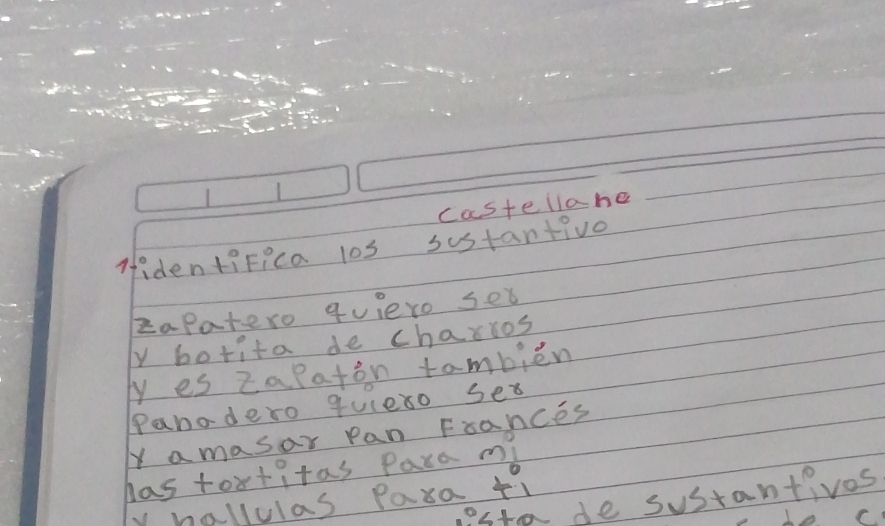 castellano
1-identifica los sustantivo
zapatero quiero ser
y botita de charros
y es zapatón también
panadero quiero ser
y amasar pan Francés
las tortitas para mi
y hallulas para ti
de sustantivos.